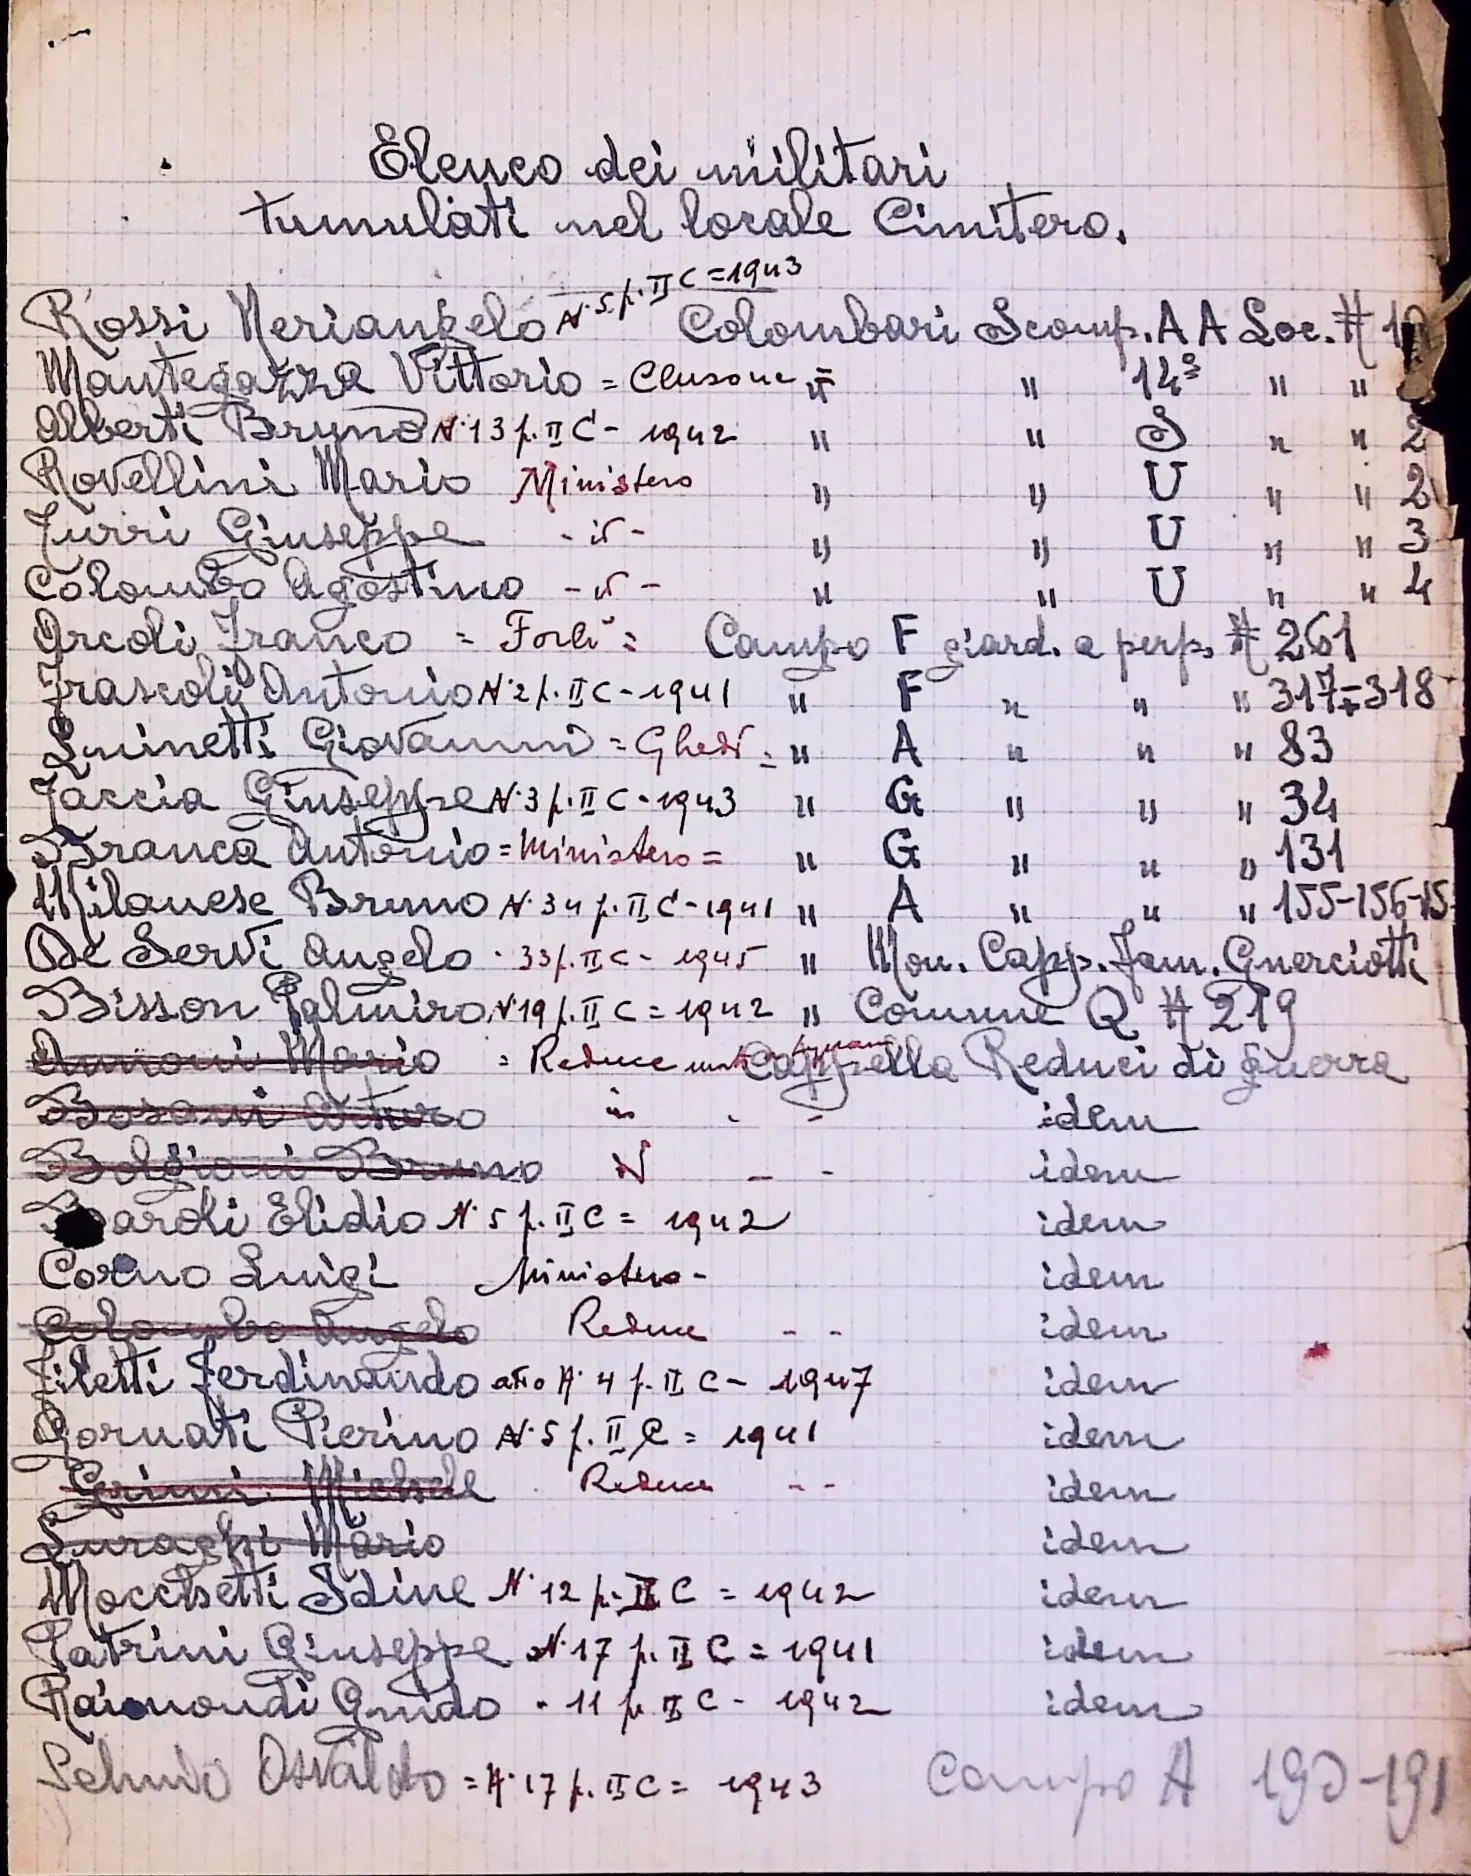 Elenco dei militari
tumulati nel locale Cimitero.
Rossi Neriangelo N. 5 p. II C = 1943 Colombari Scomp. A A Loc. #
Mantegazza Vittorio = Clusone = " 14° " "
Alberti Bruno N. 13 p. II C - 1942 " " S " " 2
Rovellini Mario Ministero " " U " " 2
Turri Giuseppe - id - " " U " " 3
Colombo Agostino - id - " " U " " 4
Arcoli Franco = Forlì = Campo F giard. a perp. # 261
Frascoli Antonio N. 2 p. II C - 1941 " F " " " 317-318
Luinetti Giovanni = Ghedi = " A " " " 83
Jaccia Giuseppe N. 3 p. II C - 1943 " G " " " 34
Branca Antonio = Ministero = " G " " " 131
Milanese Bruno N. 34 p. II C - 1941 " A " " " 155-156-15
De Servi Angelo - 33 p. II C - 1945 " Mon. Capp. Fam. Guerciotti
Bisson Palmiro N 19 p. II C = 1942 " Comune Q # 219
Annoni Mario = Reduce Cappella Reduci di guerra
Bosani Arturo id - - idem
Bolgioni Bruno id - - idem
ardi Elidio N. 5 p. II C = 1942 idem
Corno Luigi Ministero - idem
Colombo Angelo Reduce - - idem
Filetti Ferdinando atto N. 4 p. II C - 1947 idem
Gornati Pierino N. 5 p. II C = 1941 idem
Grimi Michele Reduce - - idem
Luraghi Mario idem
Moccisetti Idine N. 12 p. II C = 1942 idem
Patrini Giuseppe N. 17 p. II C = 1941 idem
Raimondi Guido - 11 p. II C - 1942 idem
Osvaldo = N. 17 p. II C = 1943 Campo A 190-191